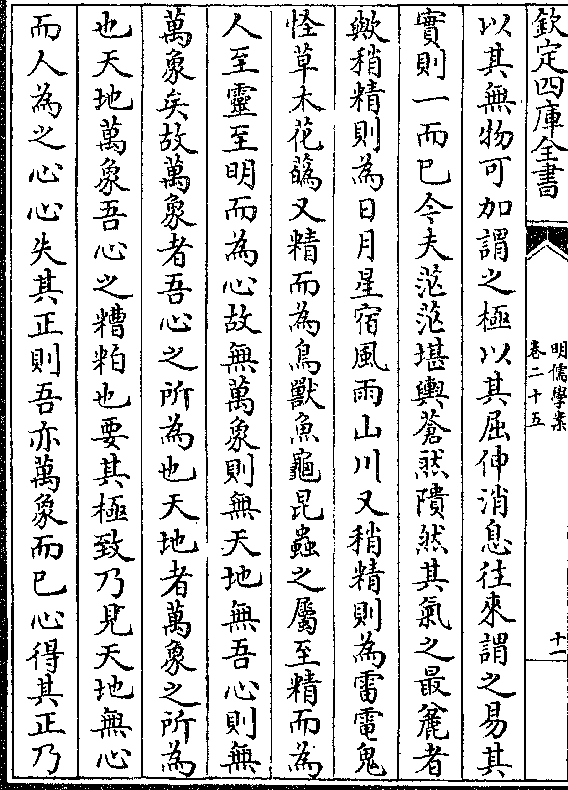 欽定四庫全書
明儒學案
卷二十五
十一
以其無物可加謂之極以其屈伸消息往來謂之易其
實則一而已今夫茫茫堪輿蒼然隤然其氣之最麄者
歟稍精則為日月星宿風雨山川又稍精則為雷電鬼
怪草木花蘤又精而為鳥獸魚龜昆蟲之屬至精而為
人至靈至明而為心故無萬象則無天地無吾心則無
萬象矣故萬象者吾心之所為也天地者萬象之所為
也天地萬象吾心之糟粕也要其極致乃見天地無心
而人為之心心失其正則吾亦萬象而已心得其正乃